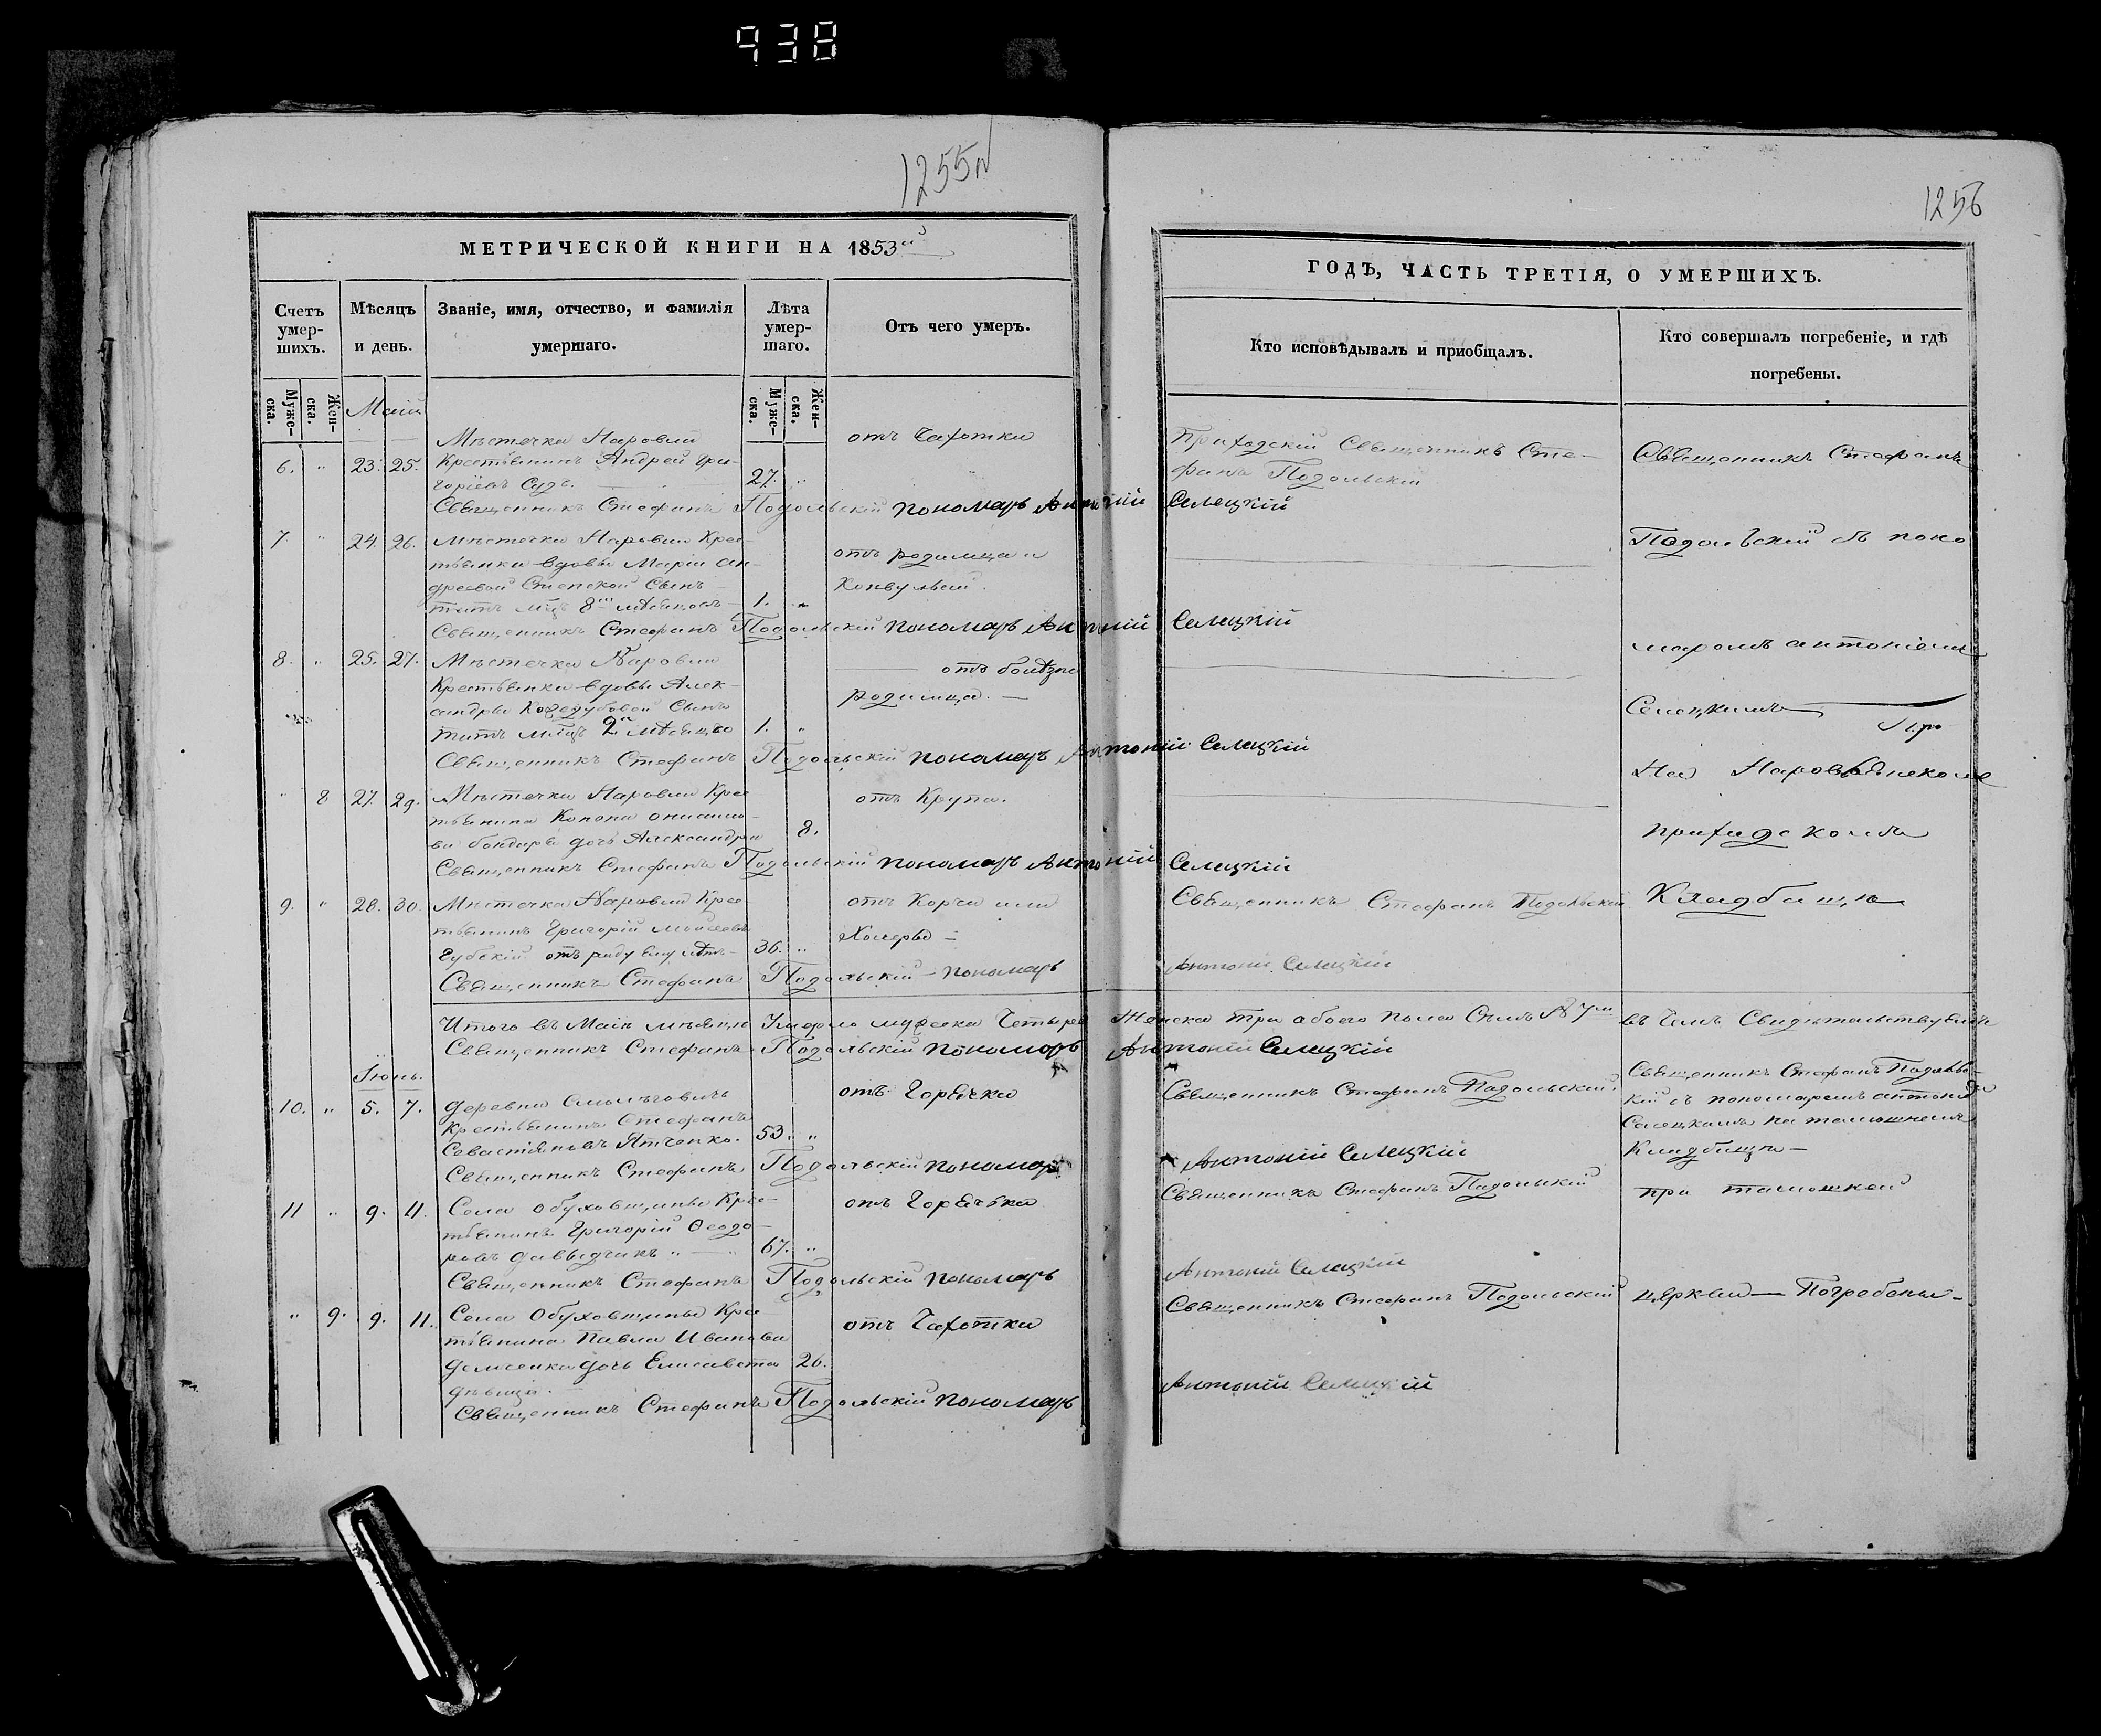 938
1255
1256
МЕТРИЧЕСКОЙ КНИГИ НА 1853й
Счетъ умер-шихъ.
Мѣсяцъ и день.
Званіе, имя, отчество, и фамилія умершаго.
Лѣта умер-шаго.
Отъ чего умеръ.
Муже-ска.
Жен-ска.
Муже-ска.
Жен-ска.
Маій
Мѣстечка Наровли
отъ Чахотки
6. " 23. 25. Крестьянинъ Андрей Гри-
горіевъ Судъ. 27. "
Священникъ Стефанъ Подольскій пономарь Антоній Селецкій
7. " 24. 26. Мѣстечка Наровли Крес-
отъ родимца и
тьянки вдовы Маріи Ан-
конвульсій.
дреевой Сынъ
1. "
Священникъ Стефанъ Подольскій пономарь Антоній Селецкій
8. " 25. 27. Мѣстечка Наровли
отъ болѣзни
Крестьянки вдовы Алек-
родимца.
сандры Сынъ
1. "
Священникъ Стефанъ Подольскій пономарь Антоній Селецкій
" 8 27. 29. Мѣстечка Наровли Крес-
отъ Крупа.
тьянина Конона
Бондаря дочь Александра 8.
Священникъ Стефанъ Подольскій пономарь Антоній Селецкій
9. " 28. 30. Мѣстечка Наровли Крес-
отъ Корчи или
тьянинъ Григорій Моисеевъ
Холеры
Губскій отъ роду ему лѣтъ 36. "
Священникъ Стефанъ Подольскій пономарь
Итого въ Маіи мѣсяцѣ Умерло мужеска Четыре Женска три обоего пола Семь № 7 въ Чемъ Свидѣтельствуемъ
Священникъ Стефанъ Подольскій пономарь Антоній Селецкій
Іюнь.
10. " 5. 7. деревни Смолѣговичъ
отъ Горячки
Крестьянинъ Стефанъ
Севастіановъ Ятченко. 53. "
Священникъ Стефанъ Подольскій пономарь
11 " 9. 11. Села Обуховщины Крес-
отъ Горячьки
тьянинъ Григорій Ѳеодо-
ровъ Давыдчикъ 67. "
Священникъ Стефанъ Подольскій пономарь
" 9. 9. 11. Села Обуховщины Крес-
отъ Чахотки
тьянина Павла Иванова
дочь Елисавета 26.
дѣвица.
Священникъ Стефанъ Подольскій пономарь
ГОДЪ, ЧАСТЬ ТРЕТІЯ, О УМЕРШИХЪ.
Кто исповѣдывалъ и приобщалъ.
Кто совершалъ погребеніе, и гдѣ погребены.
Приходскій Священникъ Сте-
фанъ Подольскій
Священникъ Стефанъ
Подольскій съ поно
маромъ Антоніемъ
Селецкимъ
На Наровлянскомъ
приходскомъ
Священникъ Стефанъ Подольскій
Кладбищѣ
Антоній Селецкій
Священникъ Стефанъ Подольскій.
Священникъ Стефанъ Подоль-
кій съ пономаремъ Антоніемъ
Селецкимъ на тамошнемъ
Антоній Селецкій
Кладбищѣ
Священникъ Стефанъ Подольскій
при тамошней
Антоній Селецкій
Священникъ Стефанъ Подольскій
церкви Погребены
Антоній Селецкій